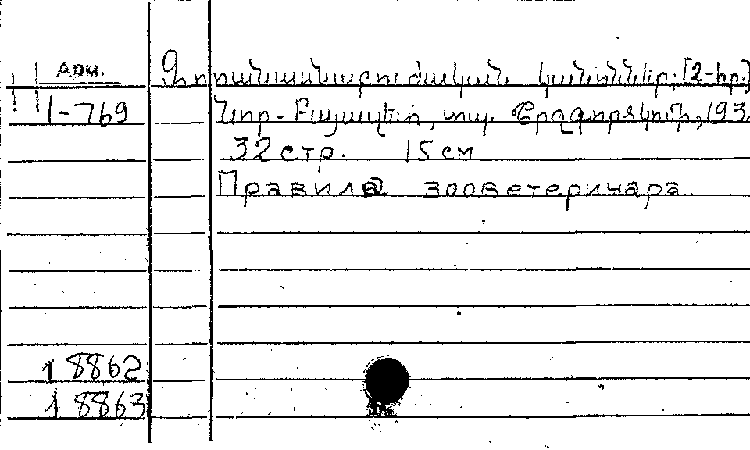 Арм.
1-769
Զոոանասնաբուժական կանոններ; [2-հր.]
Նոր-Բայազետ, տպ. Շրջգործկոմի, 193
32 стр. 15 см
Правила зооветеринара
18862
18863